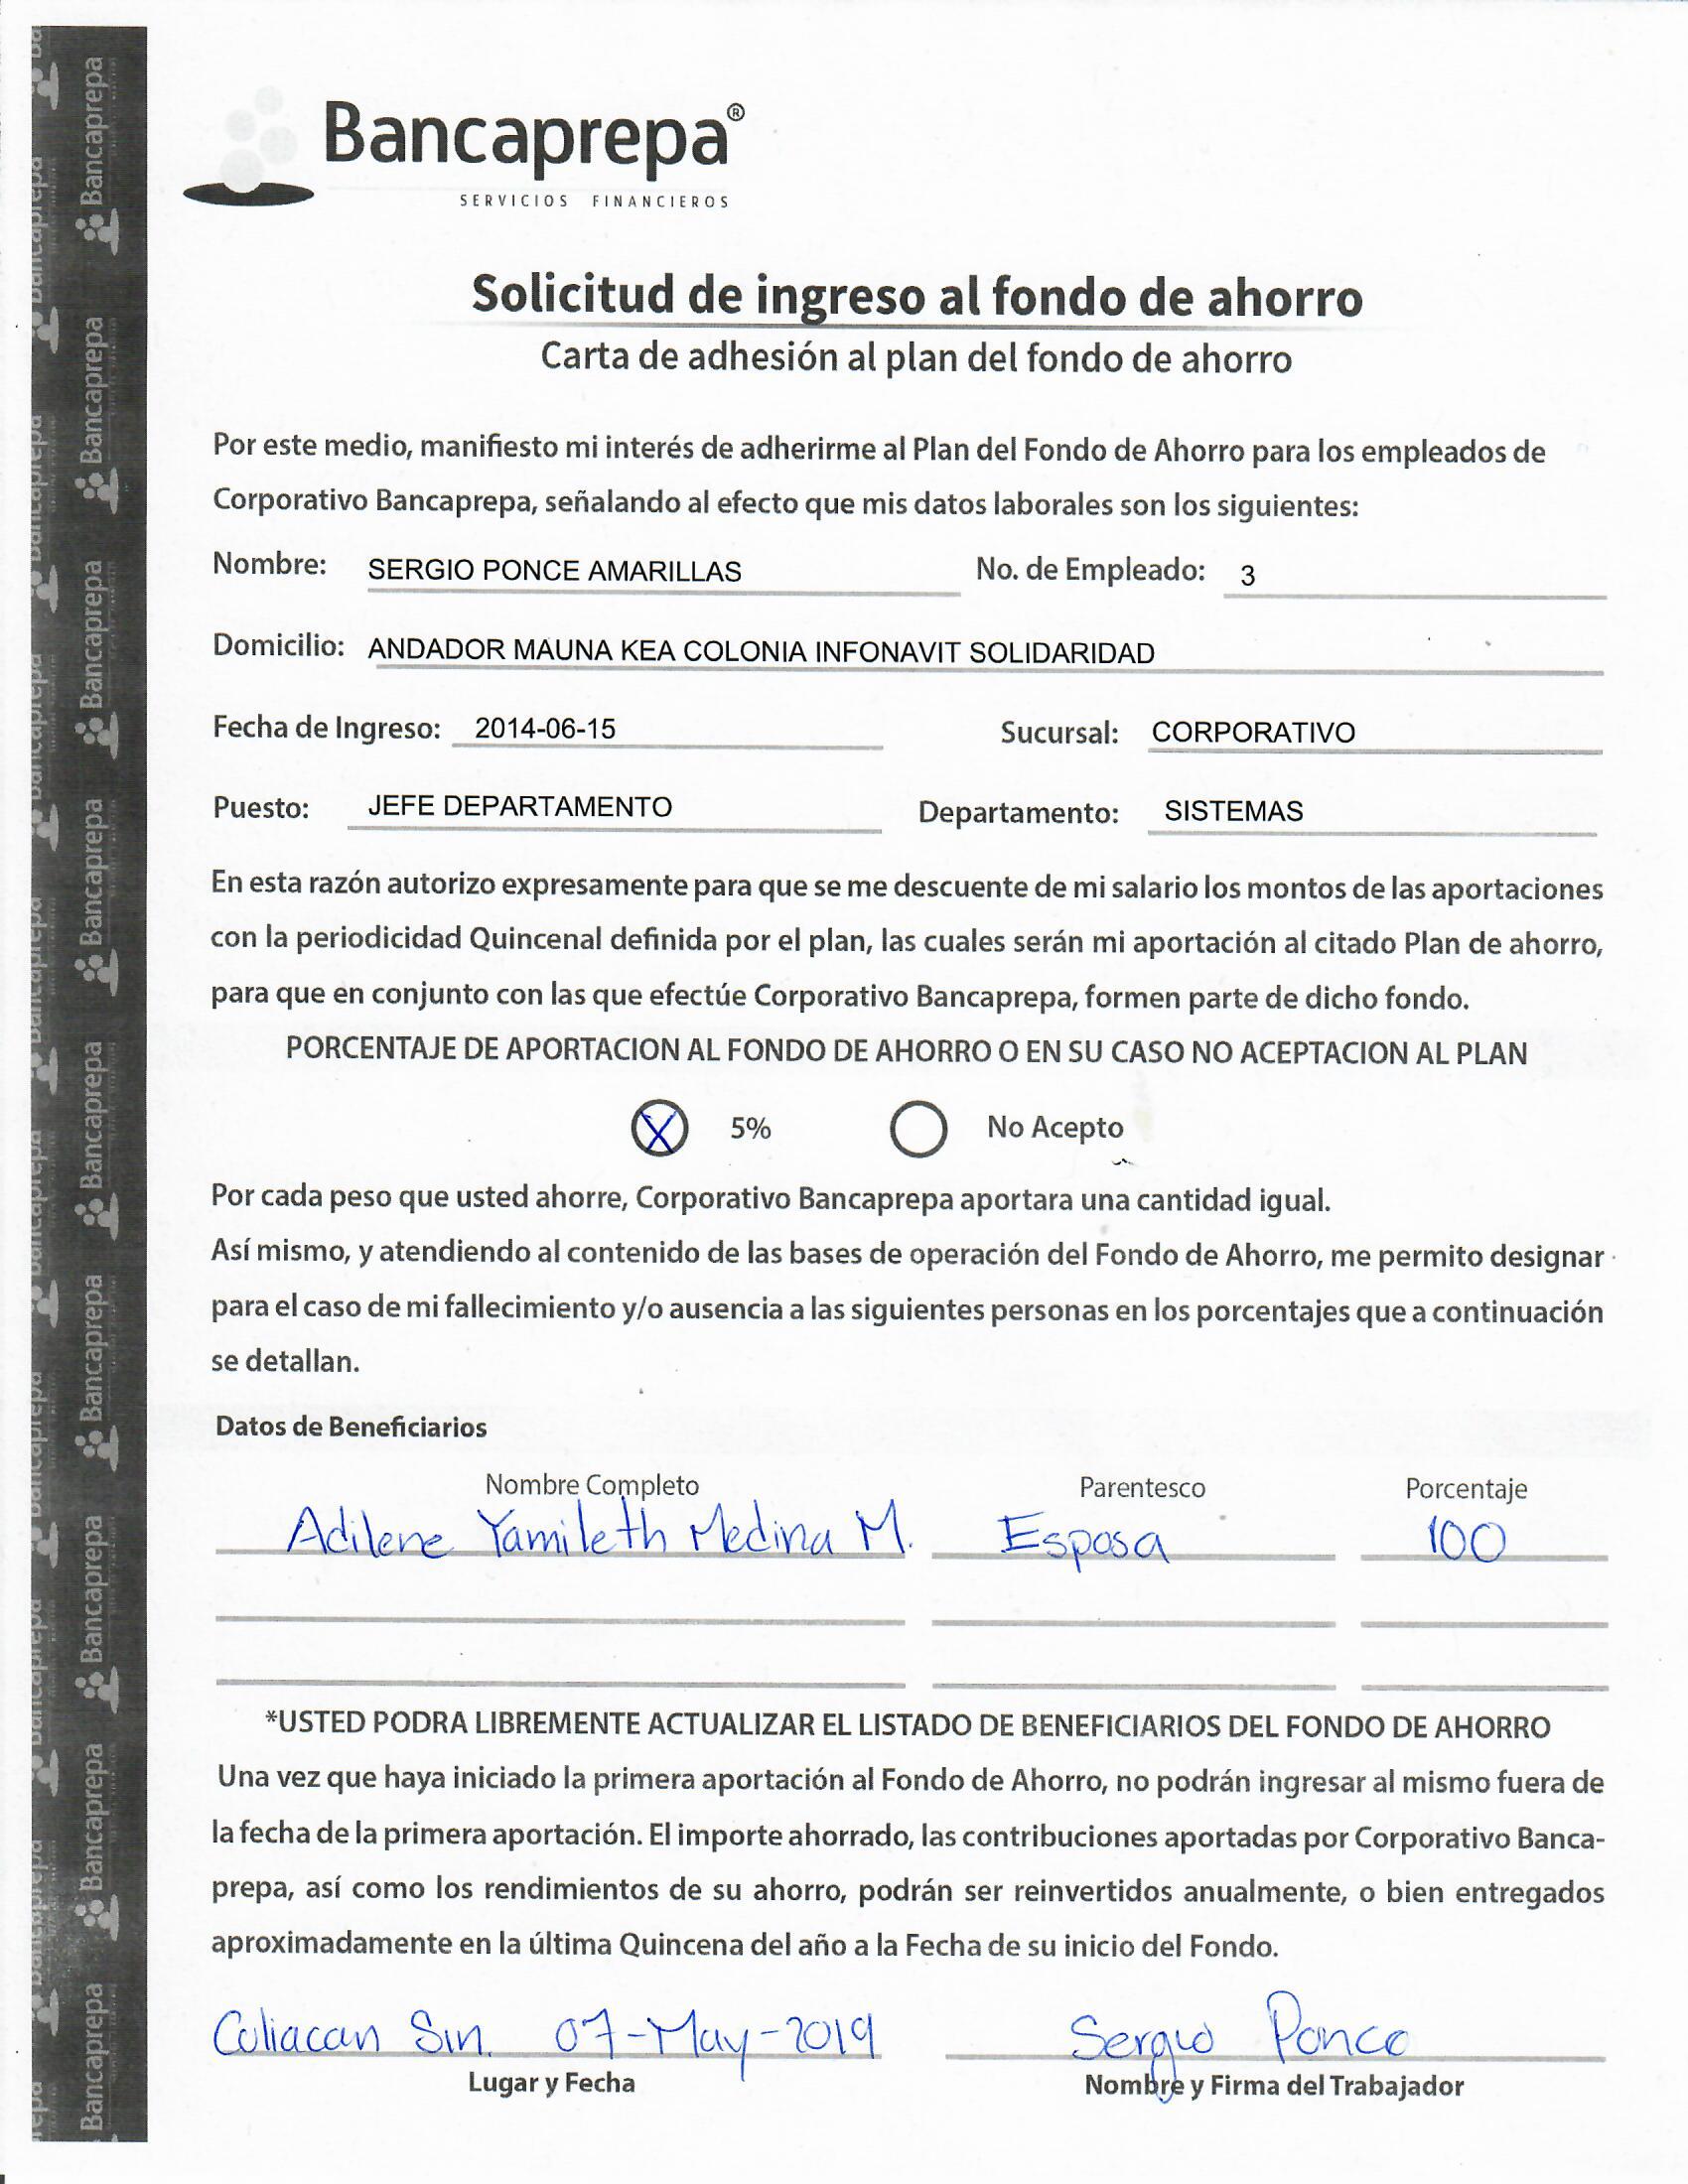 Bancaprepa®
SERVICIOS FINANCIEROS
Solicitud de ingreso al fondo de ahorro
Carta de adhesión al plan del fondo de ahorro
Por este medio, manifiesto mi interés de adherirme al Plan del Fondo de Ahorro para los empleados de
Corporativo Bancaprepa, señalando al efecto que mis datos laborales son los siguientes:
Nombre: SERGIO PONCE AMARILLAS No. de Empleado: 3
Domicilio: ANDADOR MAUNA KEA COLONIA INFONAVIT SOLIDARIDAD
Fecha de Ingreso: 2014-06-15 Sucursal: CORPORATIVO
Puesto: JEFE DEPARTAMENTO Departamento: SISTEMAS
En esta razón autorizo expresamente para que se me descuente de mi salario los montos de las aportaciones
con la periodicidad Quincenal definida por el plan, las cuales serán mi aportación al citado Plan de ahorro,
para que en conjunto con las que efectúe Corporativo Bancaprepa, formen parte de dicho fondo.
PORCENTAJE DE APORTACION AL FONDO DE AHORRO O EN SU CASO NO ACEPTACION AL PLAN
X 5% No Acepto
Por cada peso que usted ahorre, Corporativo Bancaprepa aportara una cantidad igual.
Así mismo, y atendiendo al contenido de las bases de operación del Fondo de Ahorro, me permito designar
para el caso de mi fallecimiento y/o ausencia a las siguientes personas en los porcentajes que a continuación
se detallan.
Datos de Beneficiarios
Nombre Completo Parentesco Porcentaje
Adilene Yamileth Medina M. Esposa 100
*USTED PODRA LIBREMENTE ACTUALIZAR EL LISTADO DE BENEFICIARIOS DEL FONDO DE AHORRO
Una vez que haya iniciado la primera aportación al Fondo de Ahorro, no podrán ingresar al mismo fuera de
la fecha de la primera aportación. El importe ahorrado, las contribuciones aportadas por Corporativo Banca-
prepa, así como los rendimientos de su ahorro, podrán ser reinvertidos anualmente, o bien entregados
aproximadamente en la última Quincena del año a la Fecha de su inicio del Fondo.
Culiacan Sin. 07-May-2019 Sergio Ponce
Lugar y Fecha Nombre y Firma del Trabajador
Bancaprepa
Bancaprepa
Bancaprepa
Bancaprepa
Bancaprepa
Bancaprepa
Bancaprepa
Bancaprepa
Bancaprepa